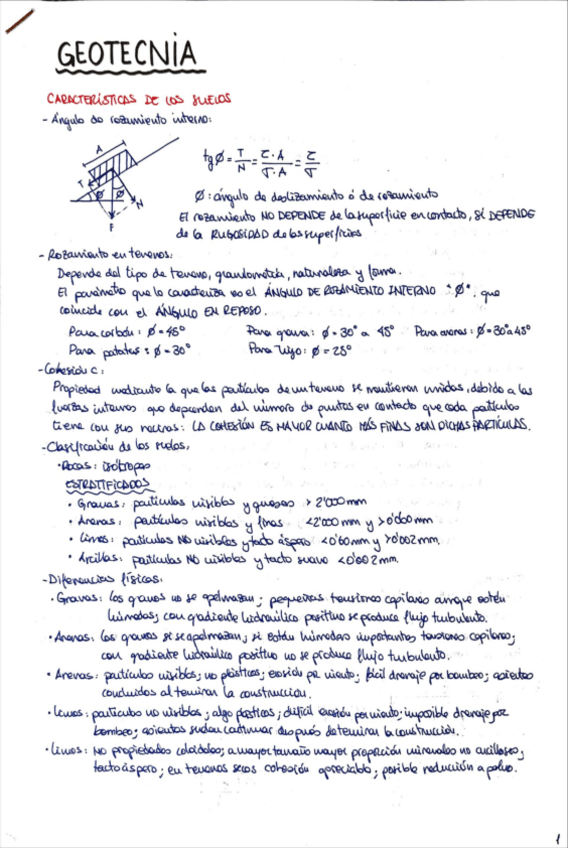 GEOTECNIA
CARACTERÍSTICAS DE LOS SUELOS
- Ángulo de rozamiento interno:
A
tg Ø = T/N = τ·A/σ·A = τ/σ
T
Ø Ø
N
F
Ø : ángulo de deslizamiento ó de rozamiento
El rozamiento NO DEPENDE de la superficie en contacto, SÍ DEPENDE
de la RUGOSIDAD de las superficies
- Rozamiento en terrenos:
Depende del tipo de terreno, granulometría, naturaleza y forma.
El parámetro que lo caracteriza es el ÁNGULO DE ROZAMIENTO INTERNO "Ø", que
coincide con el ÁNGULO EN REPOSO.
Para carbón : Ø = 45° Para grava : Ø = 30° a 45° Para arenas : Ø = 30° a 45°
Para patatas : Ø = 30° Para trigo : Ø = 25°
- Cohesión C:
Propiedad mediante la que las partículas de un terreno se mantienen unidas, debido a las
fuerzas internas que dependen del número de puntos en contacto que cada partícula
tiene con sus vecinas: LA COHESIÓN ES MAYOR CUANTO MÁS FINAS SON DICHAS PARTÍCULAS.
- Clasificación de los suelos:
· Rocas : isótropas
ESTRATIFICADOS
· Gravas : partículas visibles y gruesas > 2'000 mm
· Arenas : partículas visibles y finas < 2'000 mm y > 0'060 mm
· Limos : partículas NO visibles y tacto áspero < 0'60 mm y > 0'002 mm.
· Arcillas : partículas NO visibles y tacto suave < 0'002 mm.
- Diferencias físicas:
· Gravas : los granos no se apelmazan ; pequeñas tensiones capilares aunque estén
húmedas ; con gradiente hidráulico positivo se produce flujo turbulento.
· Arenas : los granos sí se apelmazan, si están húmedas importantes tensiones capilares ;
con gradiente hidráulico positivo no se produce flujo turbulento.
· Arenas : partículas visibles ; no plásticas ; erosión por viento ; fácil drenaje por bombeo ; asientos
concluidos al terminar la construcción.
· Limos : partículas no visibles ; algo plásticos ; difícil erosión por viento ; imposible drenaje por
bombeo ; asientos suelen continuar después de terminar la construcción.
· Limos : No propiedades coloidales ; a mayor tamaño mayor proporción minerales no arcillosos ;
tacto áspero ; en terrenos secos cohesión apreciable ; posible reducción a polvo.
1